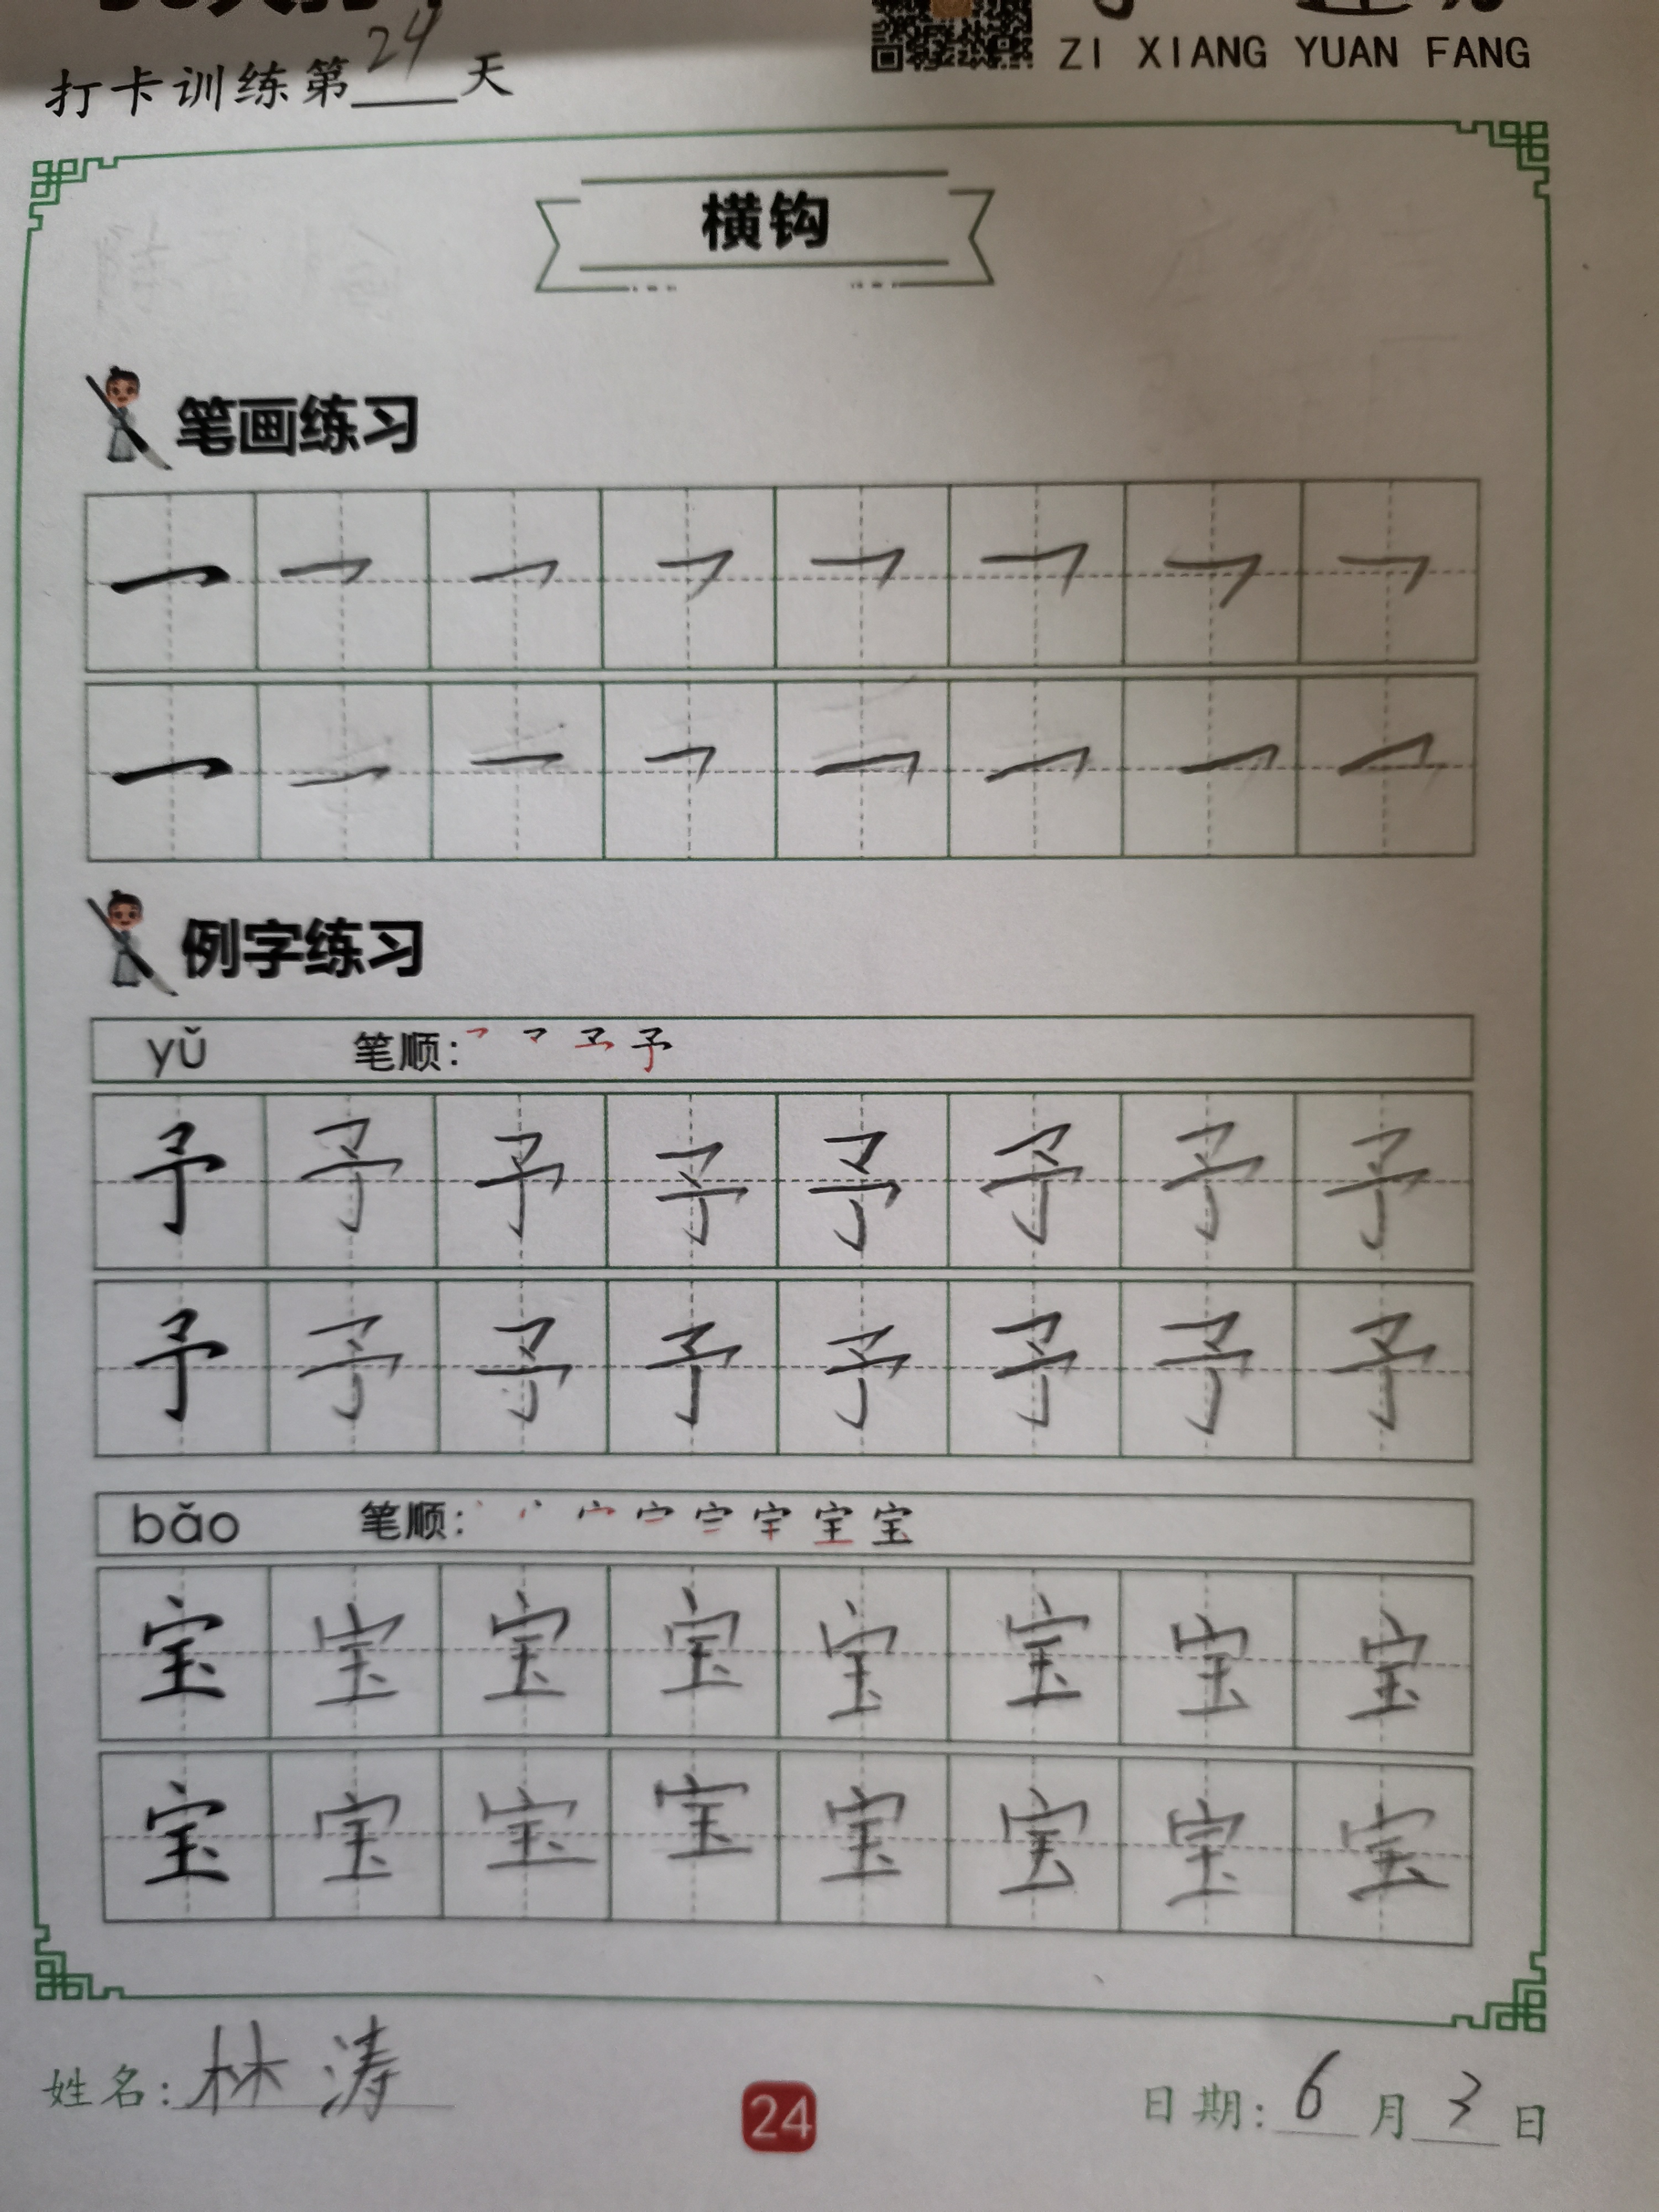 打卡训练第24天
ZI XIANG YUAN FANG
横钩
笔画练习
例字练习
yǔ 笔顺: 予
予 予 予 予 予 予 予 予
予 予 予 予 予 予 予 予
bǎo 笔顺: 宝
宝 宝 宝 宝 宝 宝 宝 宝
宝 宝 宝 宝 宝 宝 宝 宝
姓名: 林涛
24
日期: 6月3日